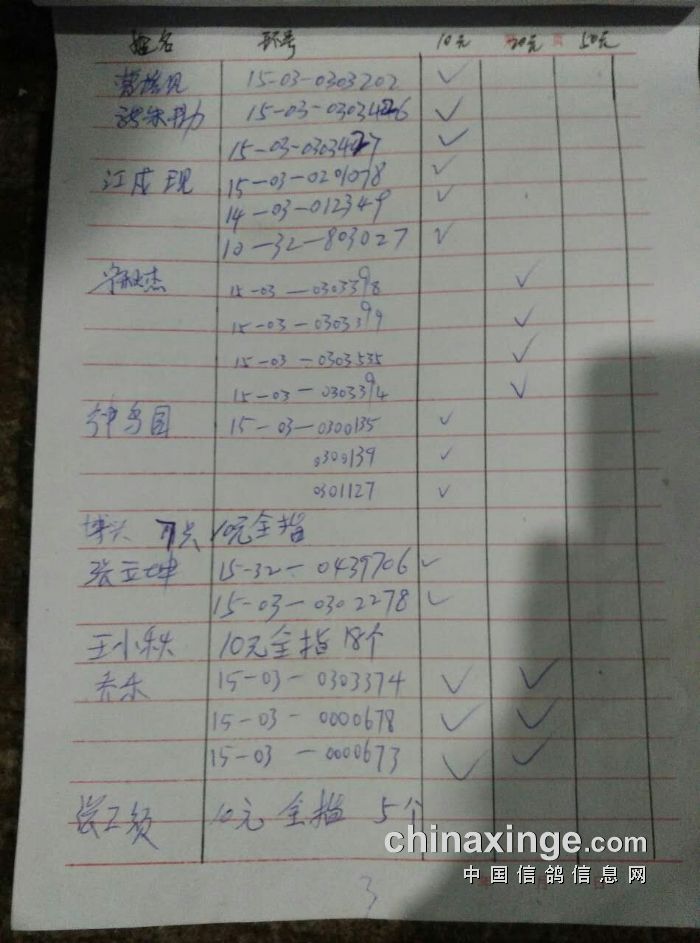 姓名 环号 10元 20元 50元
15-03-0303202 ✓
15-03-0303426 ✓
15-03-0303427 ✓
江成现 15-03-0201078 ✓
14-03-012349 ✓
10-32-803027 ✓
15-03-0303398 ✓
15-03-0303399 ✓
15-03-0303535 ✓
15-03-0303394 ✓
国 15-03-0300135 ✓
0300139 ✓
0301127 ✓
博兴 7只 10元全指
张立坤 15-32-0439706 ✓
15-03-0302278 ✓
王小秋 10元全指 18个
乔乐 15-03-0303374 ✓ ✓
15-03-0000678 ✓ ✓
15-03-0000673 ✓ ✓
10元全指 5个
chinaxinge.com
中国信鸽信息网
3